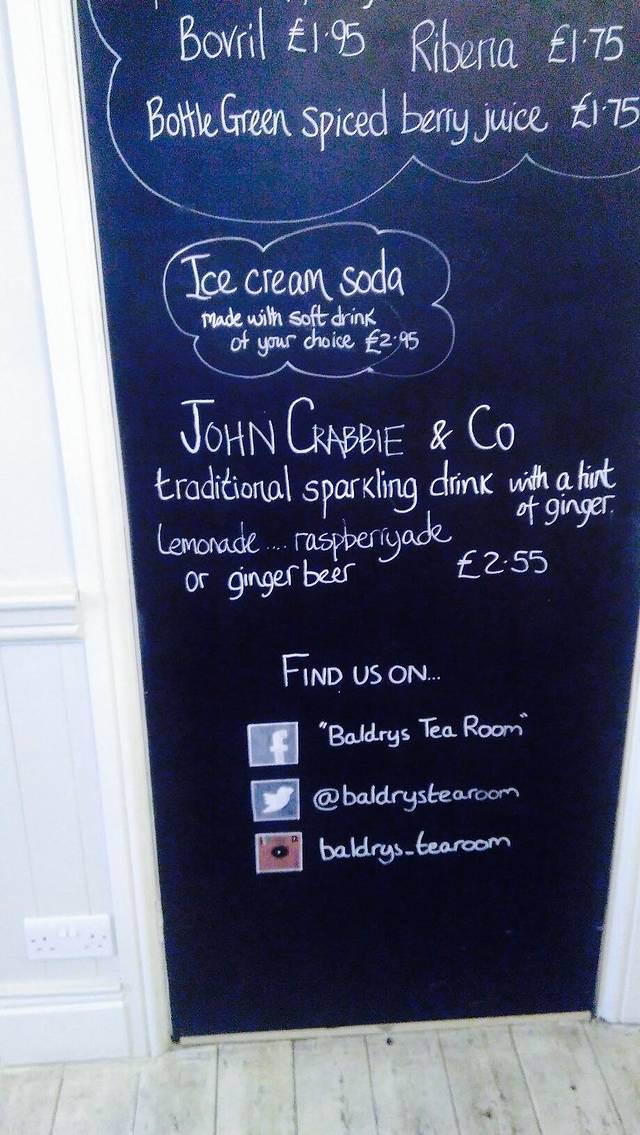 Bovril £1.95 Ribena £1.75
Bottle Green spiced berry juice £1.75
Ice cream soda
made with soft drink
of your choice £2.95
JOHN CRABBIE & Co
traditional sparkling drink with a hint
of ginger.
Lemonade.... raspberryade
or ginger beer £2.55
FIND US ON...
"Baldrys Tea Room"
@baldrystearoom
baldrys_tearoom